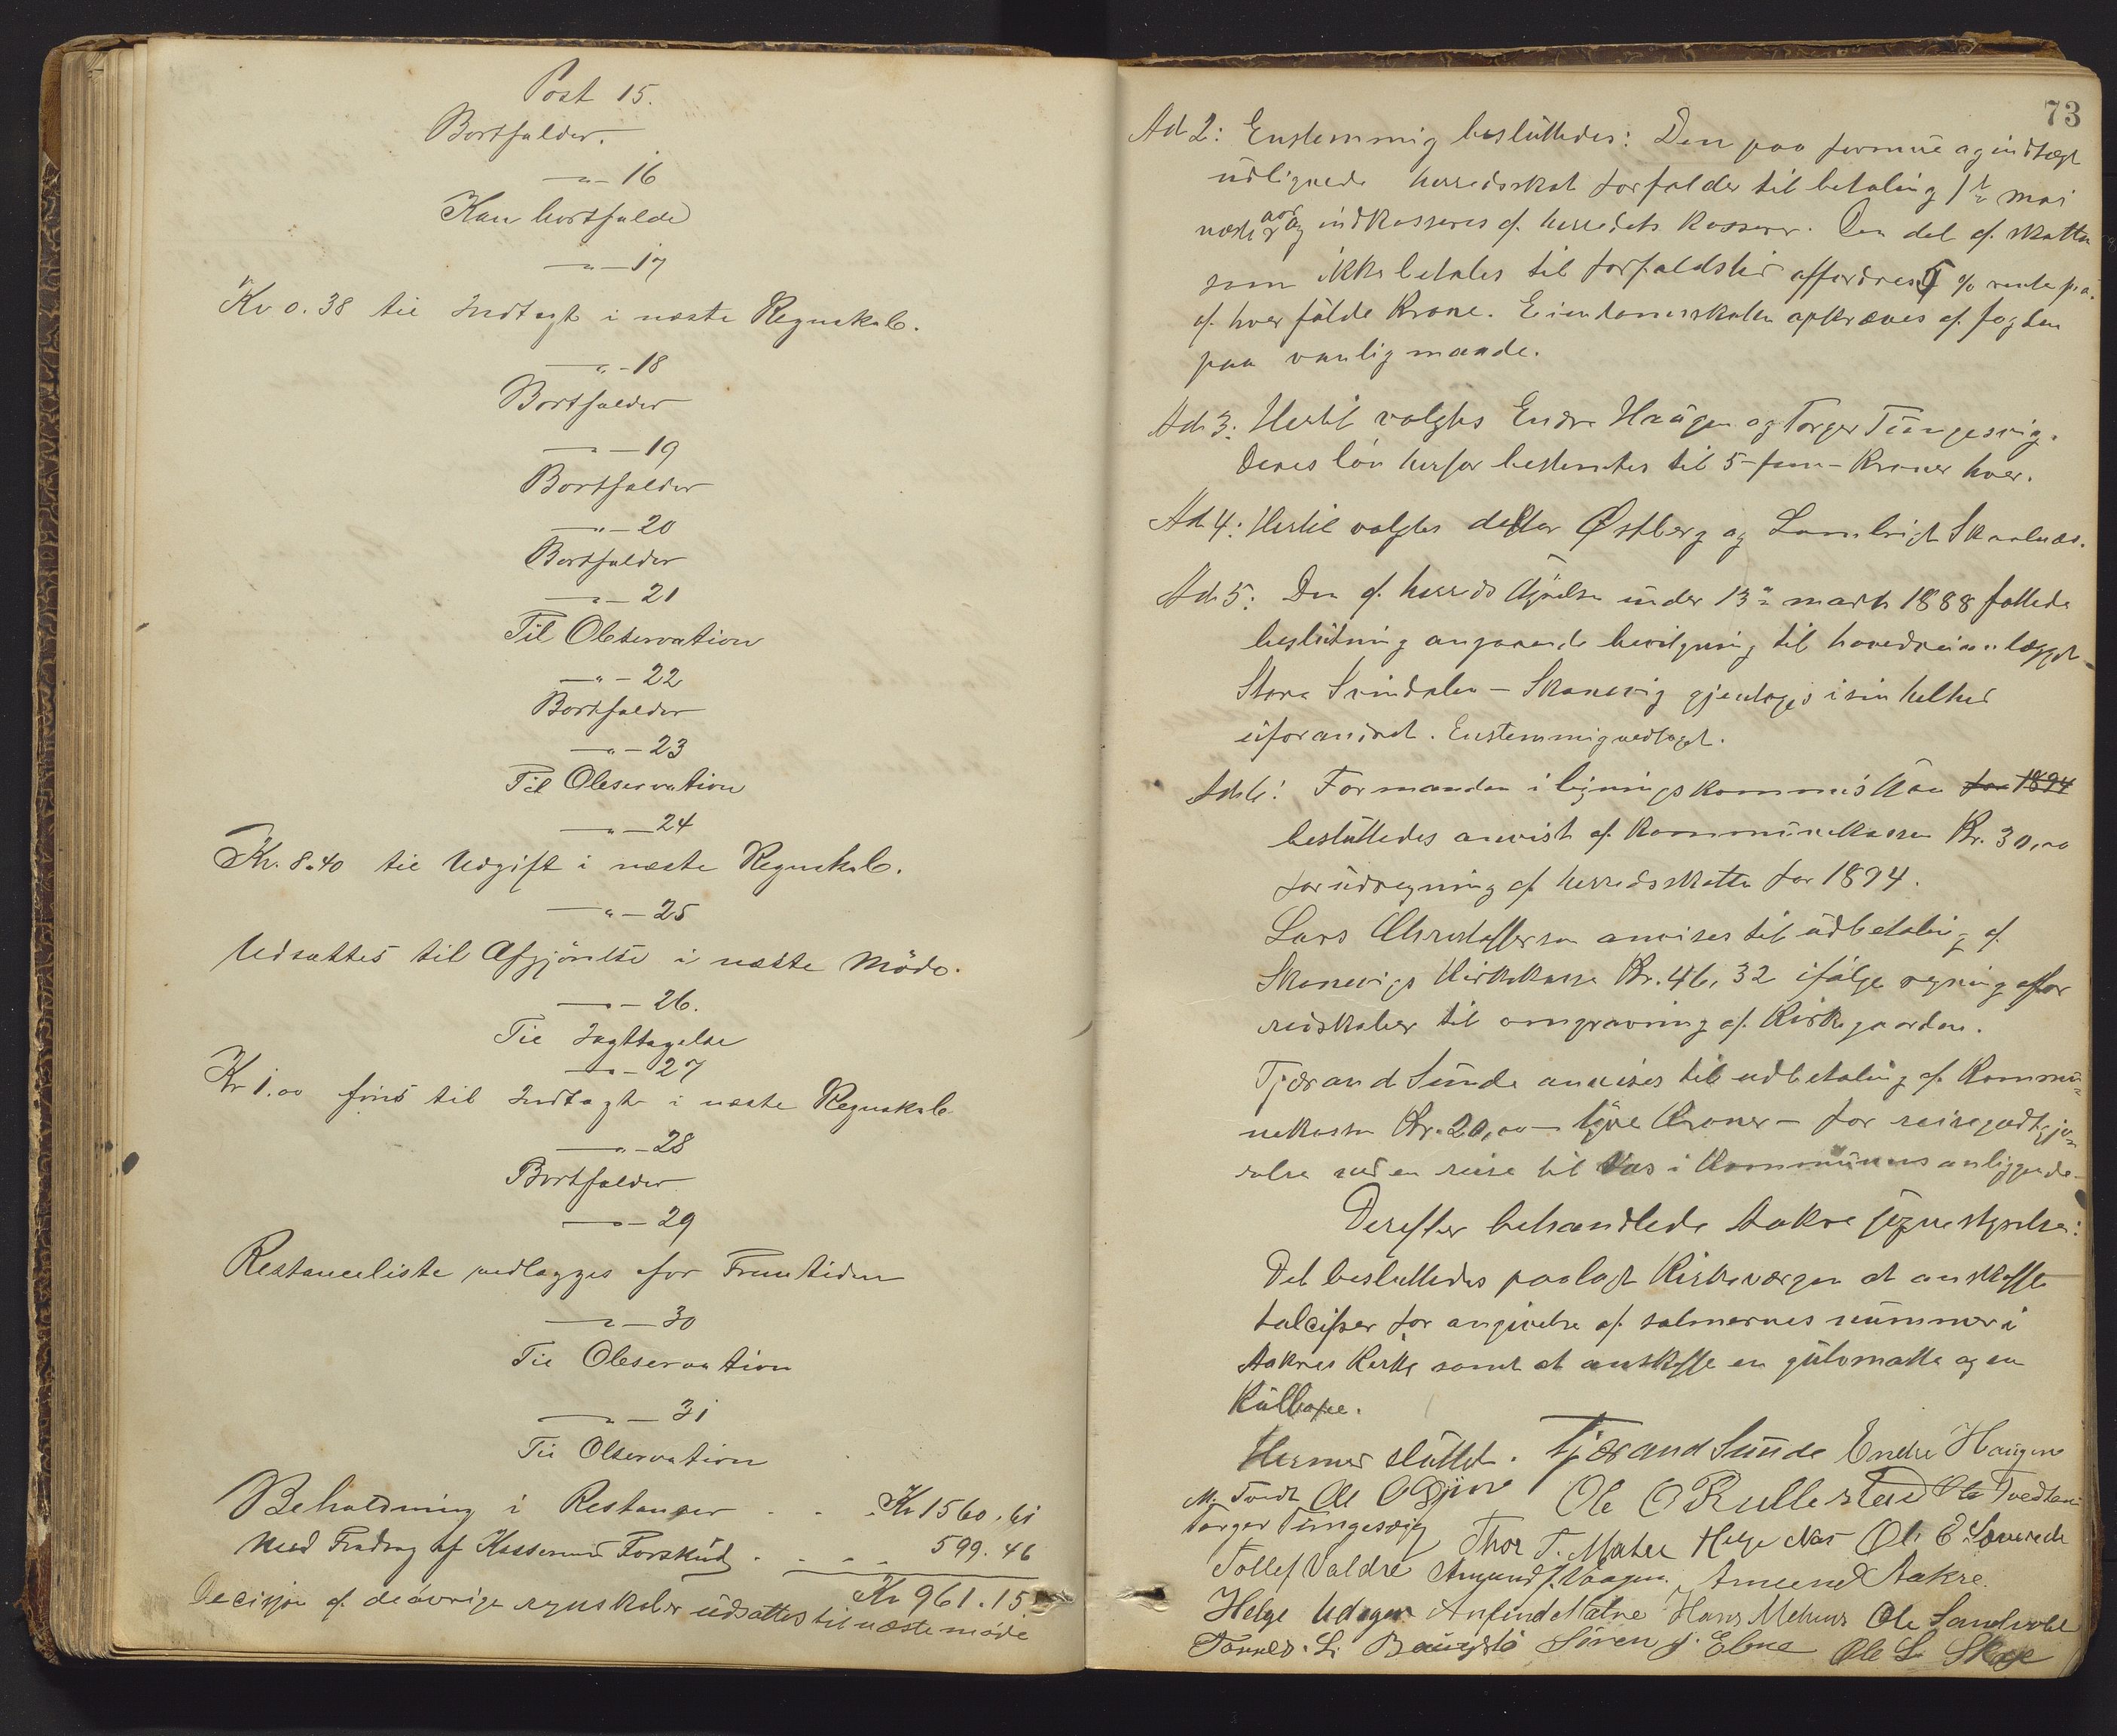 Post 15.
Bortfalder.
—"— 16
Kan bortfalde
—"— 17
Kr 0.38 til Indtægt i næste Regnskab.
—"— 18
Bortfalder
—"— 19
Bortfalder
—"— 20
Bortfalder
—"— 21
Til Observation
—"— 22
Bortfalder
—"— 23
Til Observation
—"— 24
Kr. 8.40 til Udgift i næste Regnskab.
—"— 25
Udsættes til Afgjörelse i næste Möde.
—"— 26.
Til Iagttagelse
—"— 27
Kr 1.00 föres til Indtægt i næste Regnskab
—"— 28
Bortfalder
—"— 29
Restanceliste vedlægges for Fremtiden
—"— 30
Til Observation
—"— 31
Til Observation
Beholdning i Restanser . . . Kr 1560.61
Med Fradrag af Kasserers Forskud . . . . 599.46
Kr 961.15
Decisjon af de övrige regnskaber udsattes til næste möde
73
Ad 2: Enstemmig besluttedes: Den paa formue og indtægt
udlignede herredsskat forfalder til betaling 1ste mai
næste aar og indkasseres af herredets kasserer. Den del af skatten
som ikke betales til forfaldstid affordres 5 % rente p. a.
af hver fulde Krone. Eiendomsskatten opkræves af fogden
paa vanlig maade.
Ad. 3: Hertil valgtes Endre Haugen og Torger Tungesvig.
Deres lön herfor bestemtes til 5 - fem - Kroner hver.
Ad 4: Hertil valgtes doktor Østberg og Lambrigt Skaalnæs.
Ad. 5: Den af herredsstyrelsen under 13de marts 1888 fattede
beslutning angaaende bevilgning til hovedveianlægget
Store Svindalen – Skonevig gjentages i sin helhed
uforandret. Enstemmig vedtaget.
Ad. 6: Formanden i ligningskommissionen for 1894
besluttedes anvist af Kommunekassen Kr. 30,00
for udregning af herredsskatten for 1894.
Lars Christoffersen anvises til udbetaling af
Skonevigs Kirkekasse Kr. 46,32 ifölge regning over
redskaber til omgravning af Kirkegaarden.
Tjærand Sunde anvises til udbetaling af Kommu-
nekassen Kr. 20,00 – tyve Kroner – for reisegodtgjö-
relse ved en reise til Vos i Kommunens anliggende.
Derefter behandlede Aakre sognestyrelse:
Det besluttedes paalagt Kirkeværgen at anskaffe
talcifser for angivelse af salmernes nummer i
Aakres Kirke samt at anskaffe en gulvmatte og en
Kulkasse.
Hermed sluttet. Tjærand Sunde Endre Haugen
M. Tvedt Ole O Rullestad Ole Tvedten
Torger Tungesvig Thor T. Matre Helge Næs Ole E.
Tollef Valdre Amund J. Vaagen. Amund Aakre.
Helge Udager Anfind Matre Hans Mehus Ole Sandvold
Tørres. L. Sören J. Elme Ole L. Skoge